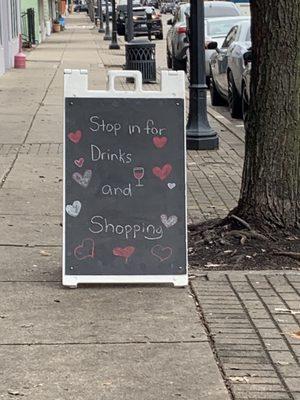 Stop in for
Drinks
and
Shopping